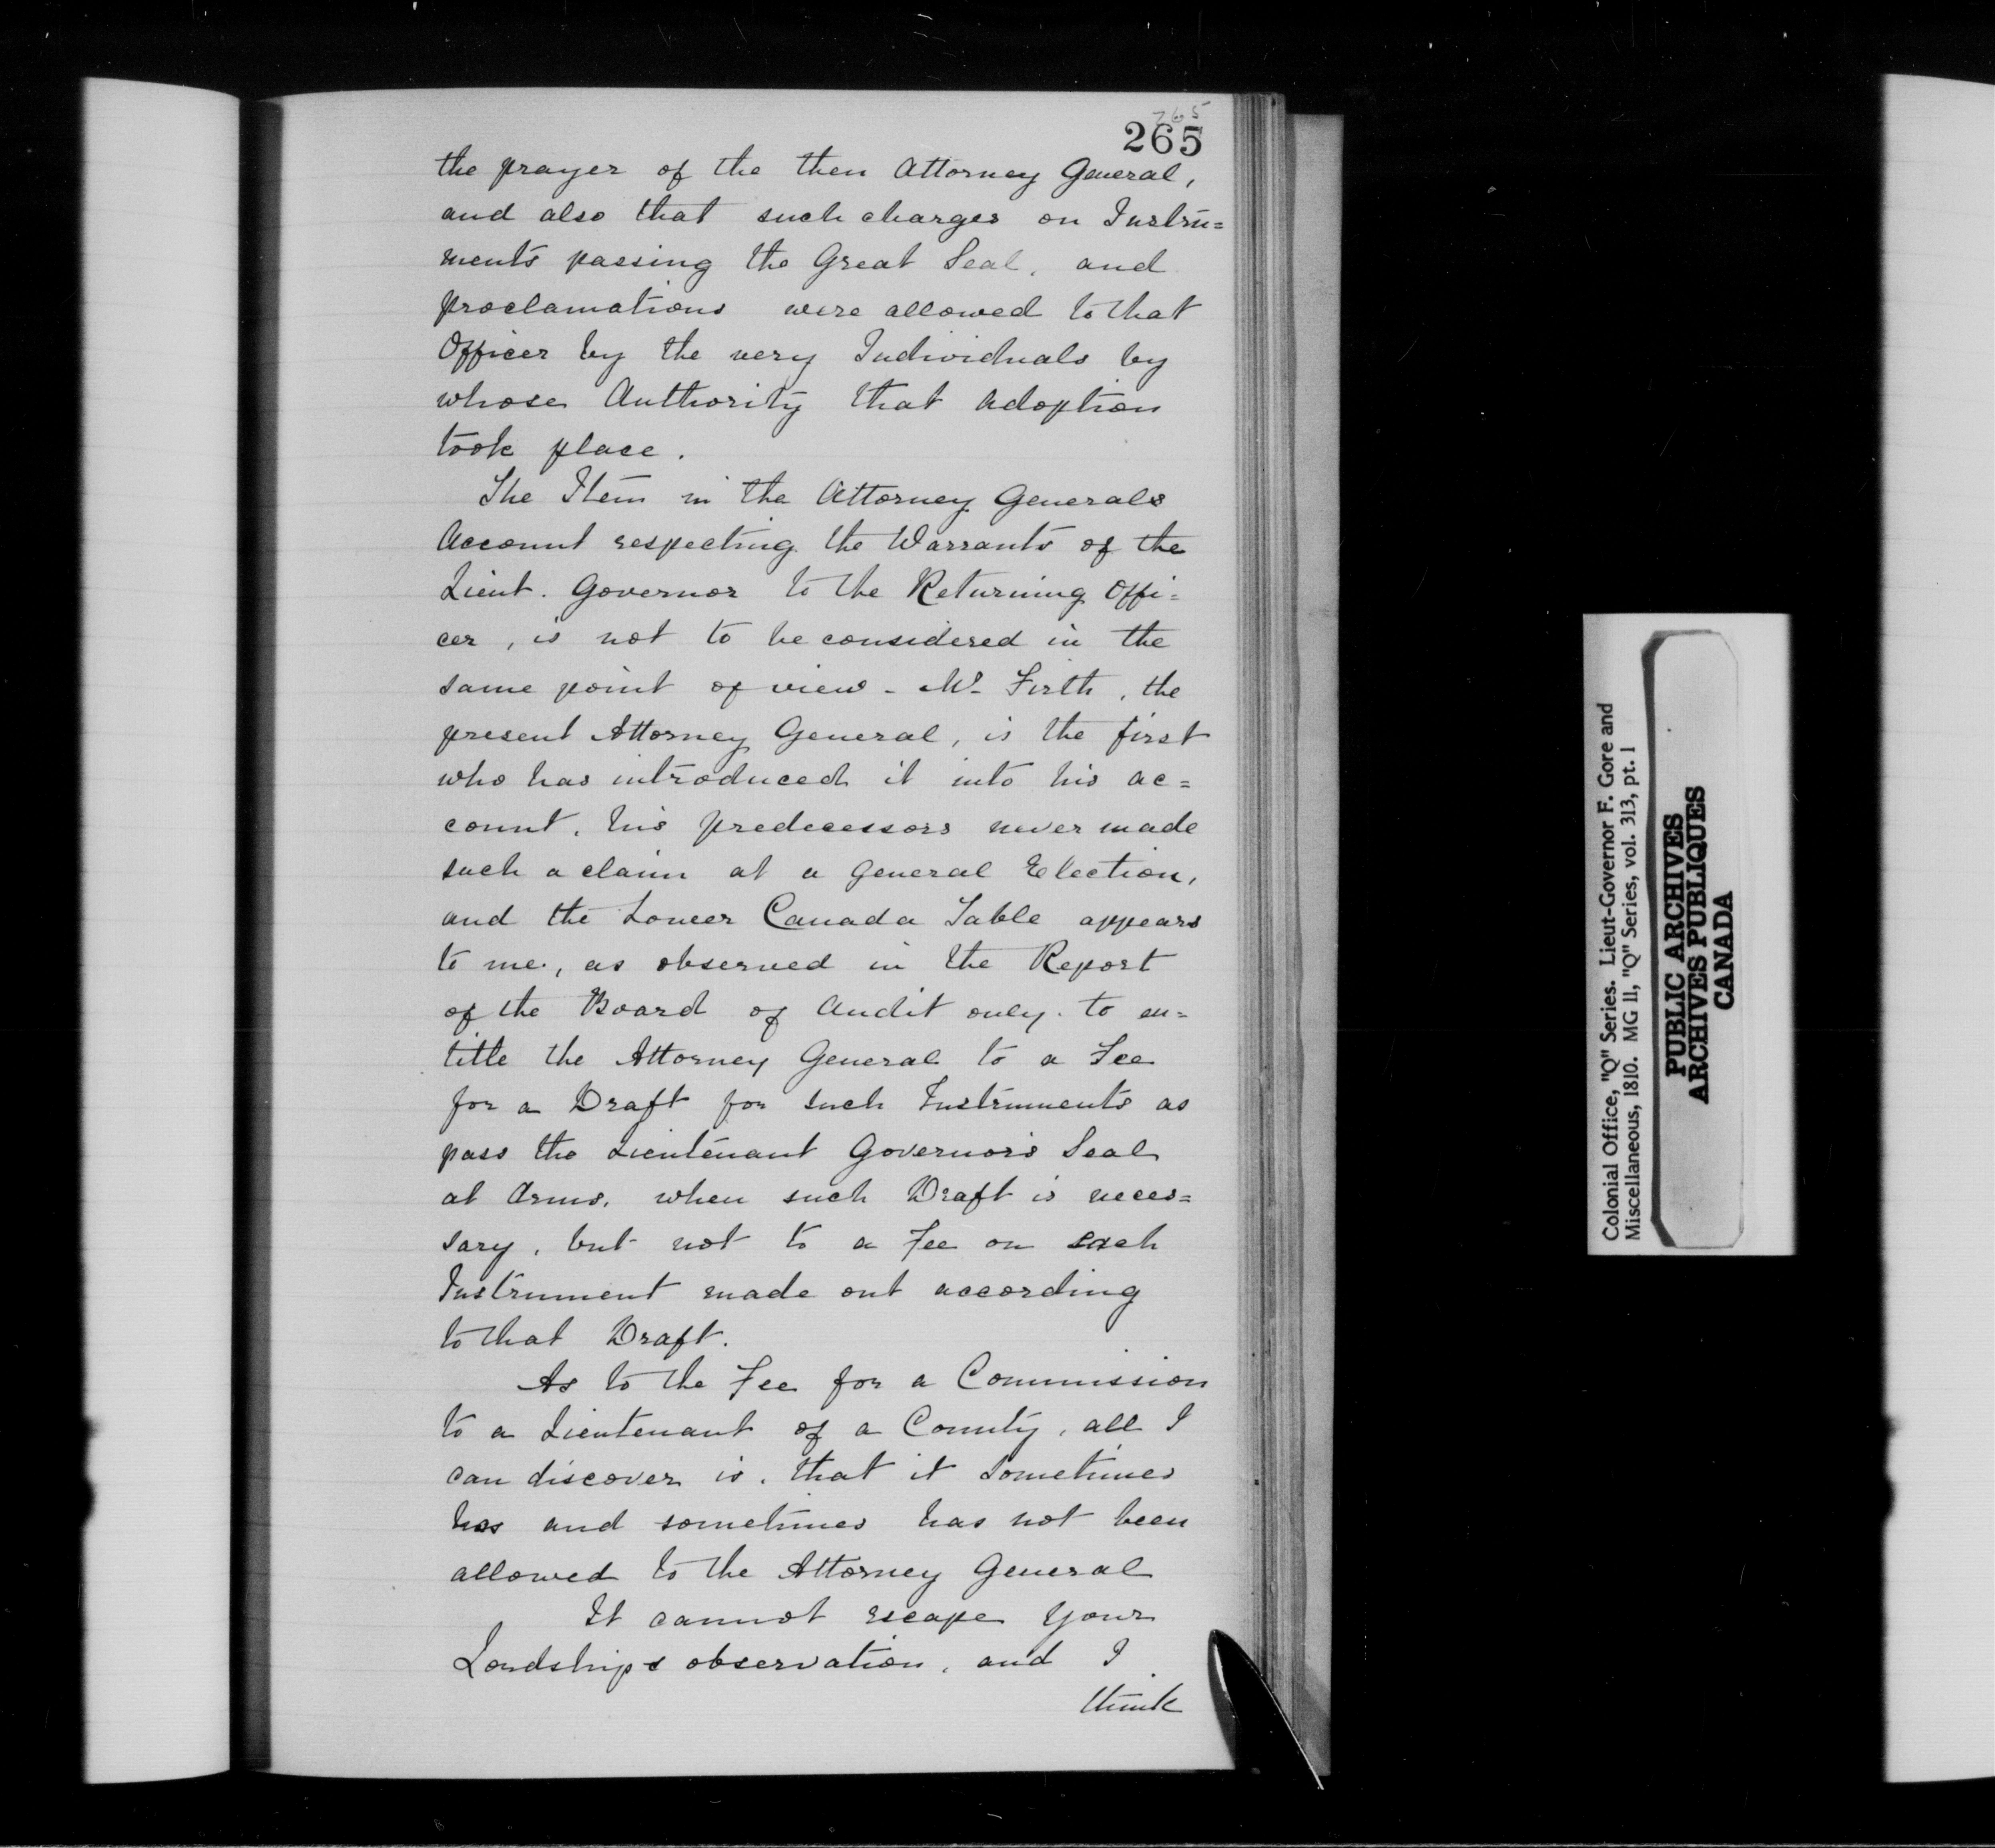 265
265
the prayer of the then Attorney General,
and also that such charges on Instru=
ments passing the Great Seal, and
proclamations were allowed to that
Officer by the very Individuals by
whose Authority that adoption
took place.
The Item in the Attorney Generals
Account respecting the Warrants of the
Lieut. Governor to the Returning Offi=
cer, is not to be considered in the
same point of view - Mr. Firth, the
present Attorney General, is the first
who has introduced it into his ac=
count, his predecessors never made
such a claim at a General Election,
and the Lower Canada Table appears
to me, as observed in the Report
of the Board of Audit only to en=
title the Attorney General to a Fee
for a Draft for such Instruments as
pass the Lieutenant Governor's Seal
at Arms, when such Draft is neces=
sary, but not to a Fee on each
Instrument made out according
to that Draft.
As to the Fee for a Commission
to a Lieutenant of a County, all I
can discover is, that it sometimes
has and sometimes has not been
allowed to the Attorney General
It cannot escape Your
Lordships observation, and I
think
Colonial Office, "Q" Series. Lieut-Governor F. Gore and
Miscellaneous, 1810. MG 11, "Q" Series, vol. 313, pt. 1
PUBLIC ARCHIVES
ARCHIVES PUBLIQUES
CANADA